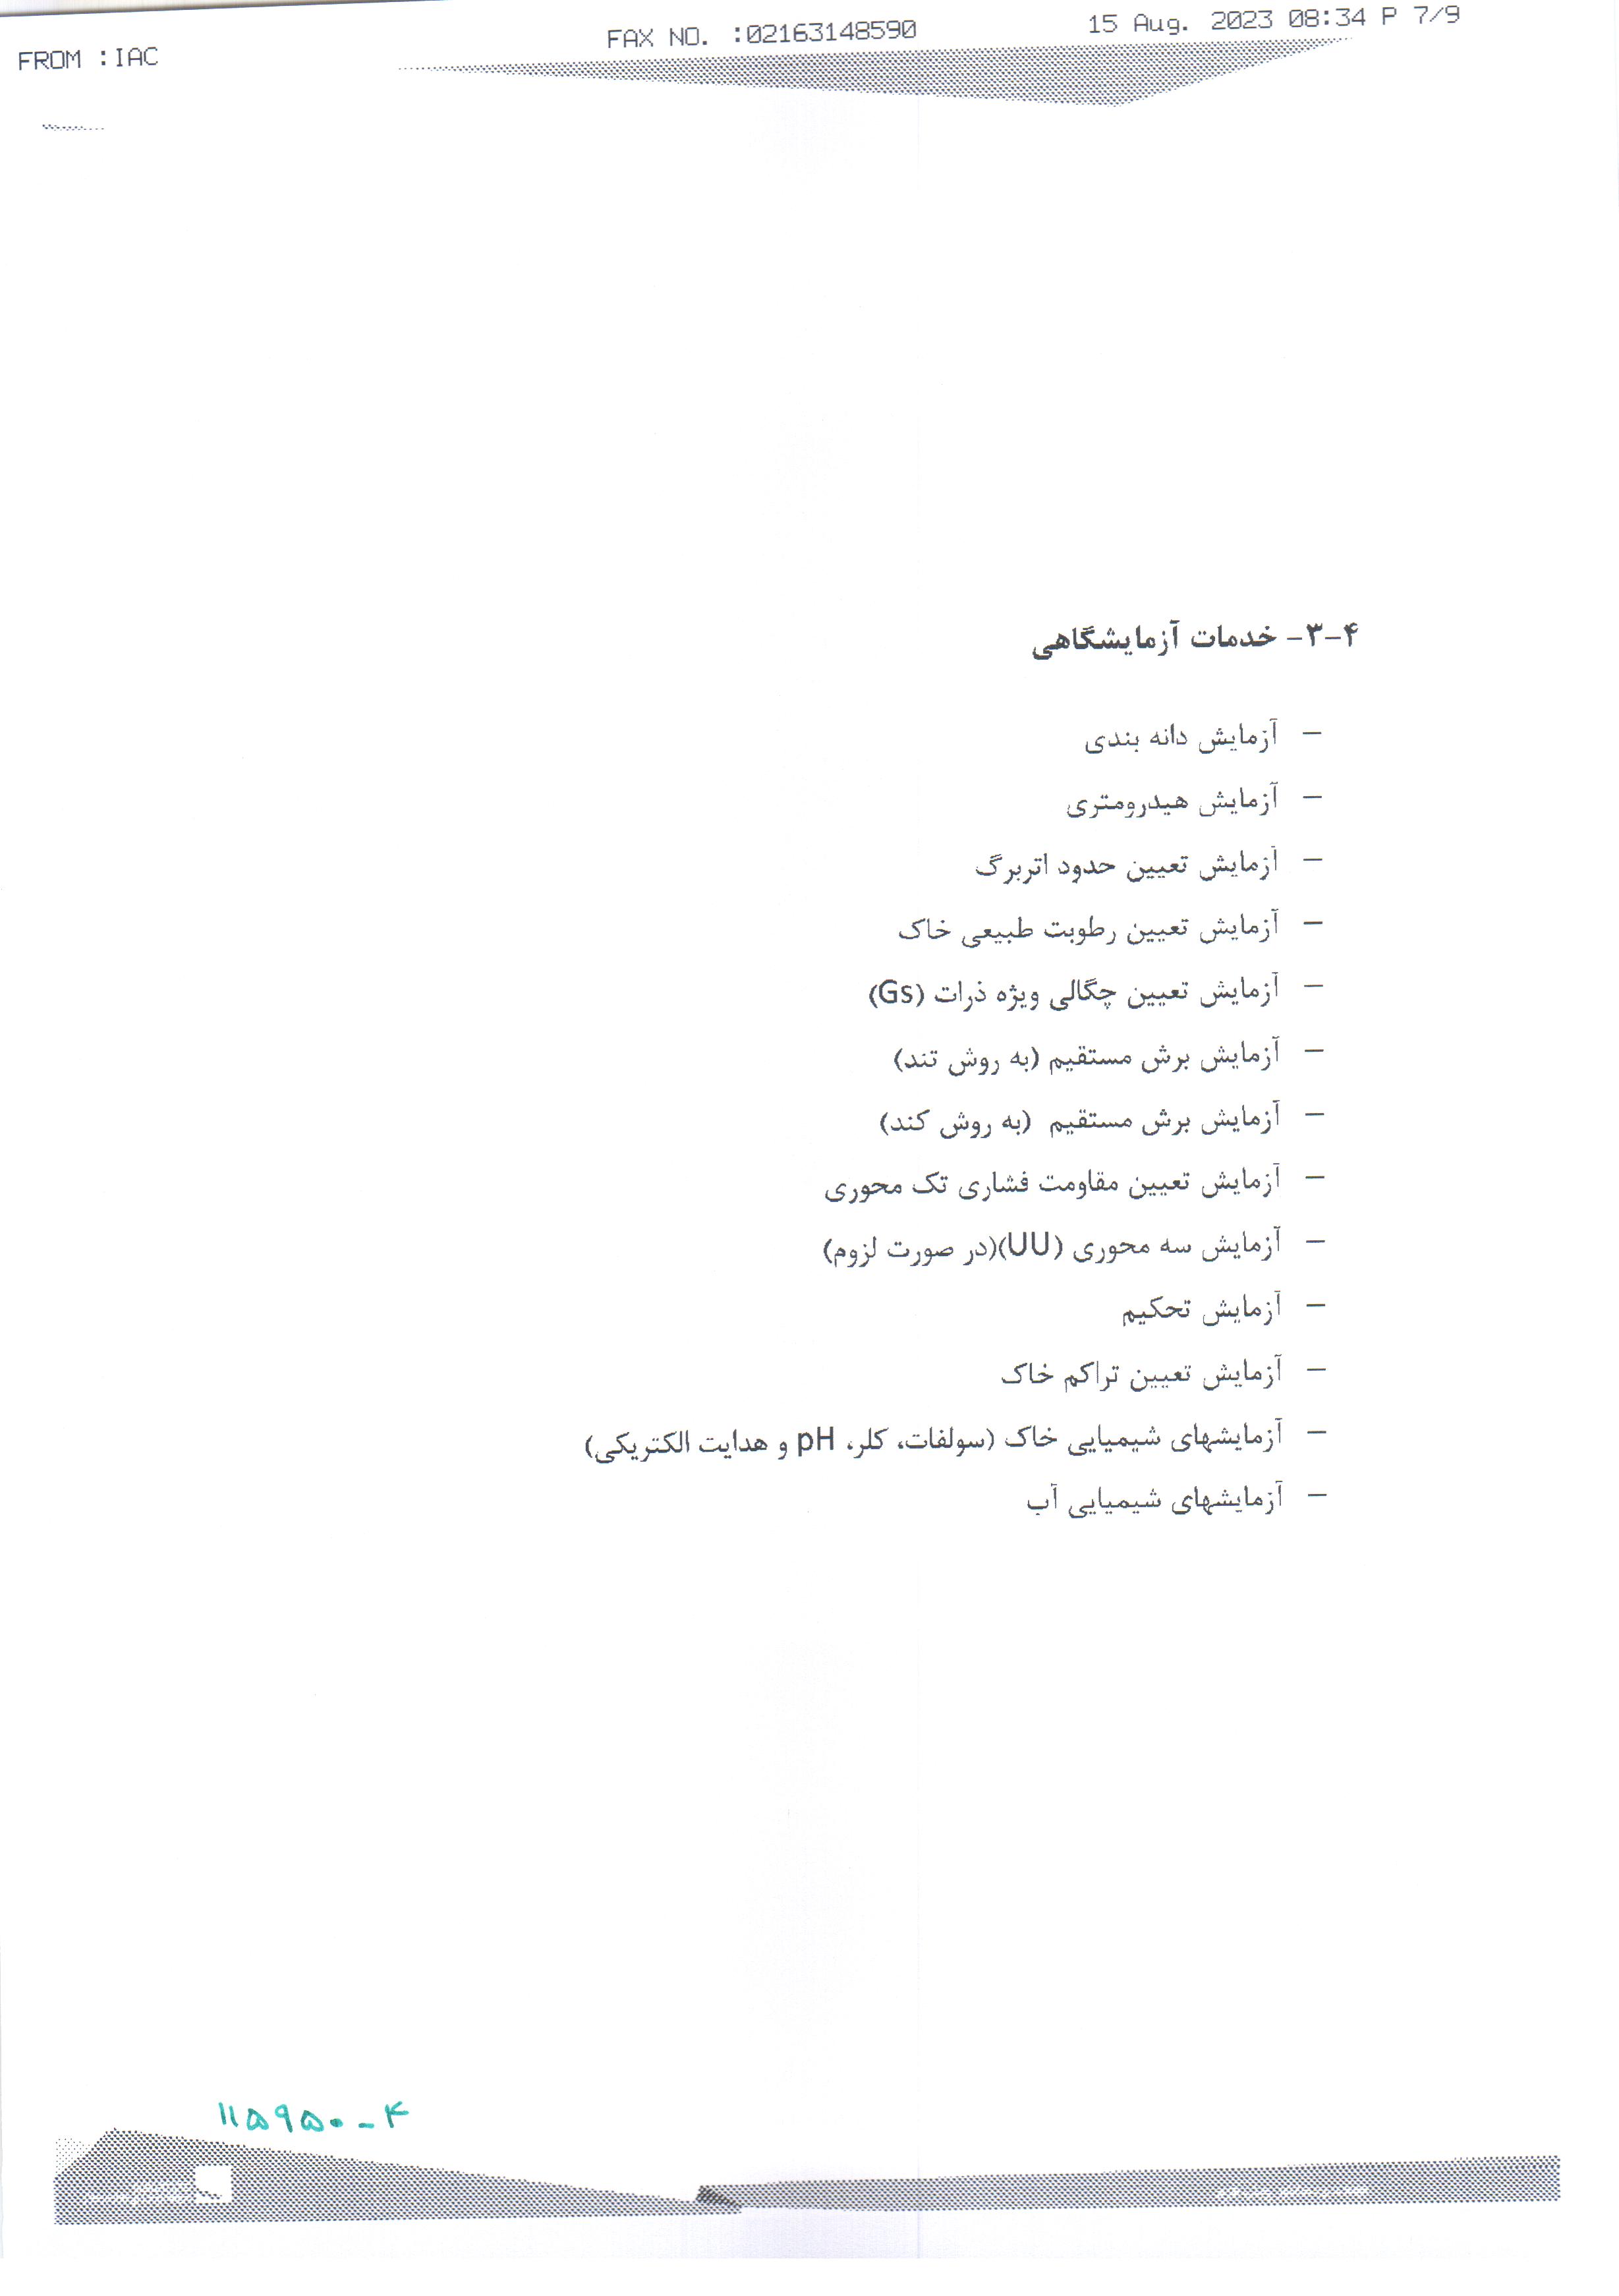 FROM :IAC
FAX NO. :02163148590
15 Aug. 2023 08:34 P 7/9
۳-۴- خدمات آزمایشگاهی
– آزمایش دانه بندی
– آزمایش هیدرومتری
– آزمایش تعیین حدود اتربرگ
– آزمایش تعیین رطوبت طبیعی خاک
– آزمایش تعیین چگالی ویژه ذرات (Gs)
– آزمایش برش مستقیم (به روش تند)
– آزمایش برش مستقیم (به روش کند)
– آزمایش تعیین مقاومت فشاری تک محوری
– آزمایش سه محوری (UU)(در صورت لزوم)
– آزمایش تحکیم
– آزمایش تعیین تراکم خاک
– آزمایشهای شیمیایی خاک (سولفات، کلر، pH و هدایت الکتریکی)
– آزمایشهای شیمیایی آب
۱۱۵۹۵۰-۴